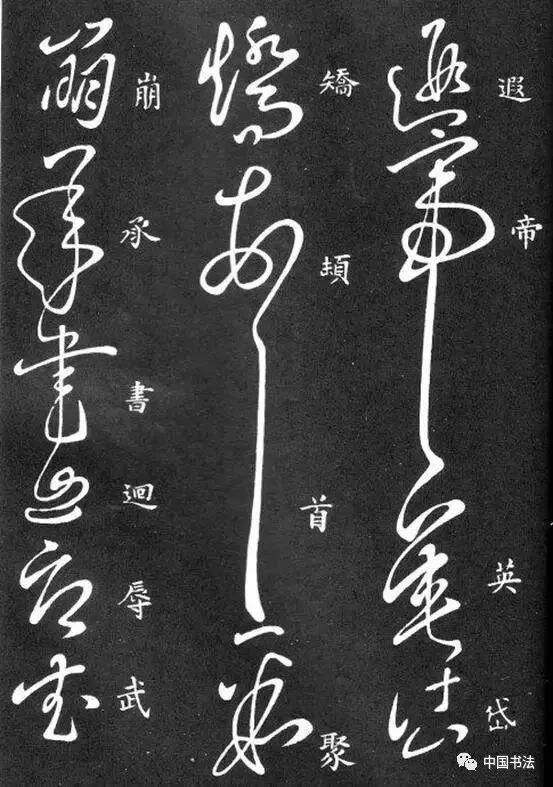 遐帝英岱
矯首聚
崩承書迴辱武
中国书法